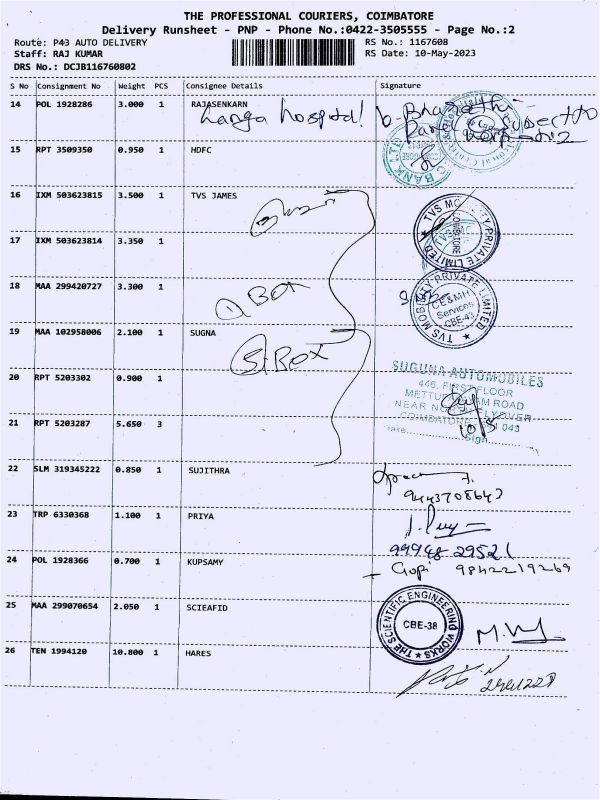 THE PROFESSIONAL COURIERS, COIMBATORE
Delivery Runsheet - PNP - Phone No.:0422-3505555 - Page No.:2
Route: P43 AUTO DELIVERY
RS No.: 1167608
Staff: RAJ KUMAR
RS Date: 10-May-2023
DRS No.: DCJB116760802
S No Consignment No Weight PCS Consignee Details Signature
14 POL 1928286 3.000 1 RAJASENKARN
hospital
15 RPT 3509350 0.950 1 HDFC
16 IXM 503623815 3.500 1 TVS JAMES
TVS MOBILITY PRIVATE LIMITED
17 IXM 503623814 3.350 1
18 MAA 299420727 3.300 1
BOX
TVS MOBILITY PRIVATE LIMITED
CE&MH
Services
CBE-43
19 MAA 102958006 2.100 1 SUGNA
5 BOX
20 RPT 5203302 0.900 1
SUGUNA AUTOMOBILES
446, FIRST FLOOR
ROAD
NEAR FLYOVER
COIMBATORE 043
Sign
21 RPT 5203287 5.650 3
22 SLM 319345222 0.850 1 SUJITHRA
9443708647
23 TRP 6330368 1.100 1 PRIYA
99948 29521
24 POL 1928366 0.700 1 KUPSAMY
Gopi 9842219269
25 MAA 299070654 2.050 1 SCIEAFID
THE SCIENTIFIC ENGINEERING WORKS
CBE-38
26 TEN 1994120 10.800 1 HARES